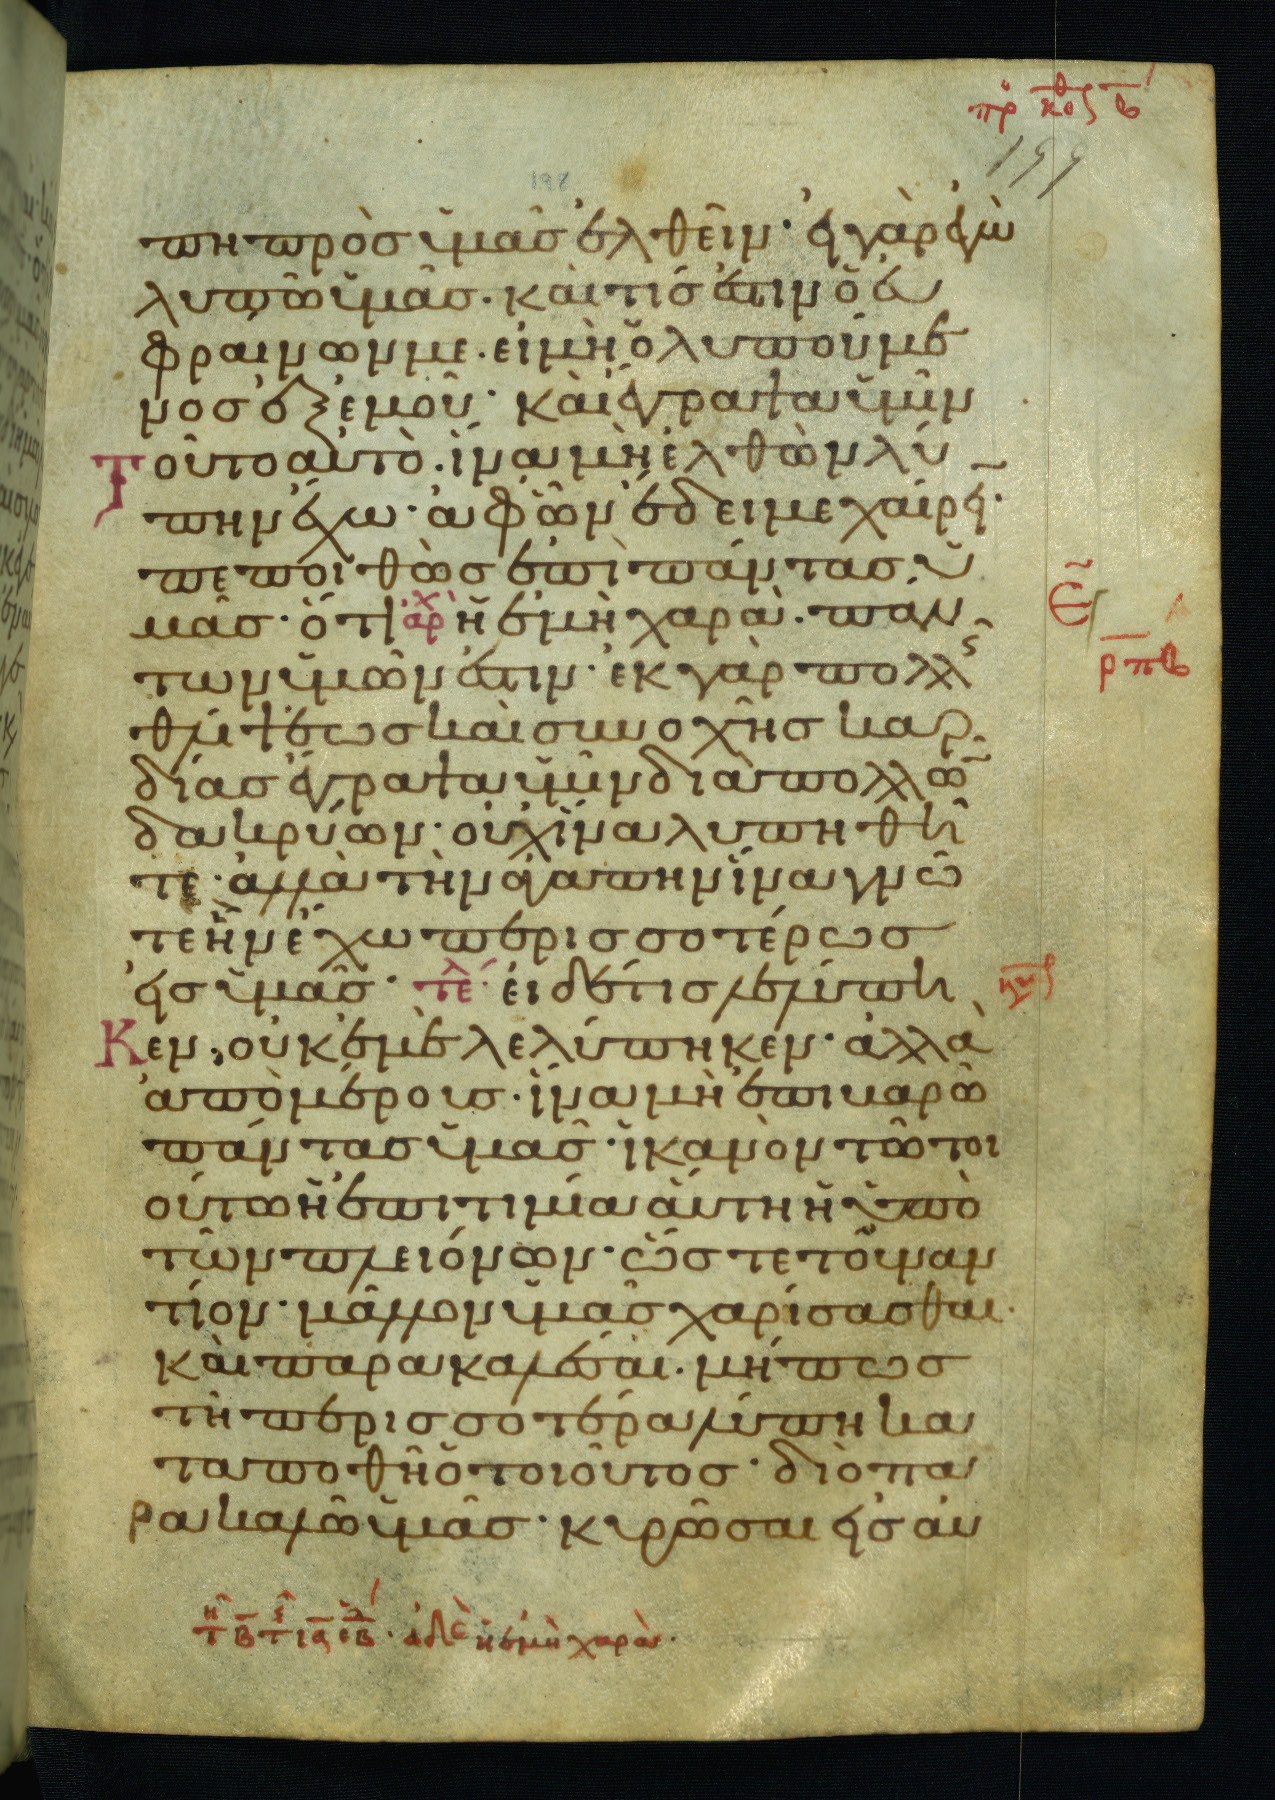 πρ κορ β
199
198
πη πρὸσ ὑμᾶσ ἐλθεῖν· εἰ γὰρ ἐγὼ
λυπῶ ὑμᾶσ. καὶ τίσ ἐστιν ὁ εὐ
φραίνων με. εἰ μὴ ὁ λυπούμε
νοσ ἐξ ἐμοῦ· καὶ ἔγραψα ὑμῖν
τοῦτο αὐτὸ. ἵνα μὴ ἐλθὼν λύ
πην ἔχω· ἀφ ὧν ἔδει με χαίρειν·
πεποιθὼσ ἐπὶ πάντασ ὑ
μᾶσ· ὅτι ἀρχ ἡ ἐμὴ χαρὰ. πάν
των ὑμῶν ἐστιν· ἐκ γὰρ πολλῆς
θλίψεωσ καὶ συνοχῆσ καρ
δίασ ἔγραψα ὑμῖν διὰ πολλῶν
δακρύων· οὐχ ἵνα λυπηθῆ
τε· ἀλλὰ τὴν ἀγάπην ἵνα γνῶ
τε ἣν ἔχω περισσοτέρωσ
εἰσ ὑμᾶσ· τελ εἰ δέ τισ λελύπη
κεν, οὐκ ἐμὲ λελύπηκεν· ἀλλὰ
ἀπὸ μέρουσ· ἵνα μὴ ἐπιβαρῶ
πάντασ ὑμᾶσ· ἱκανὸν τῶ τοι
ούτω ἡ ἐπιτιμία ἁύτη ἡ ὑπὸ
τῶν πλειόνων· ὥστε τοὐναν
τίον· μᾶλλον ὑμᾶσ χαρίσασθαι.
καὶ παρακαλέσαι. μήπωσ
τῆ περισσοτέρα λύπη κα
ταποθῆ ὁ τοιοῦτοσ· διὸ πα
ρακαλῶ ὑμᾶσ· κυρῶσαι εἰσ αὐ
ρπβ
ἀδελ ἡ ἐμὴ χαρὰ.